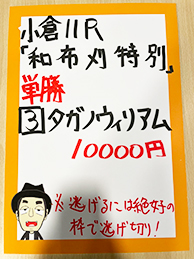 小倉11R
「和布刈特別」
単勝
3タガノウィリアム
10000円
※逃げるには絶好の
枠で逃げ切り!